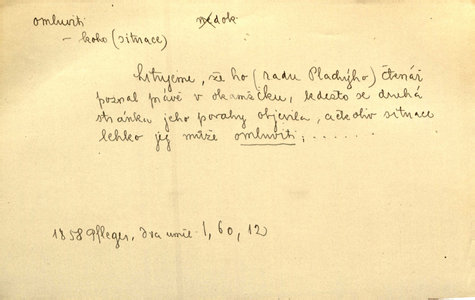 omluviti dok
– koho (situace)
Litujeme, že ho (radu Pladýho) čtenář
poznal právě v okamžiku, kdesto se druhá
stránka jeho povahy objevila, ačkoliv situace
lehko jej může omluviti; ......
1858 Pfleger, Dva uměl. I, 60, 12